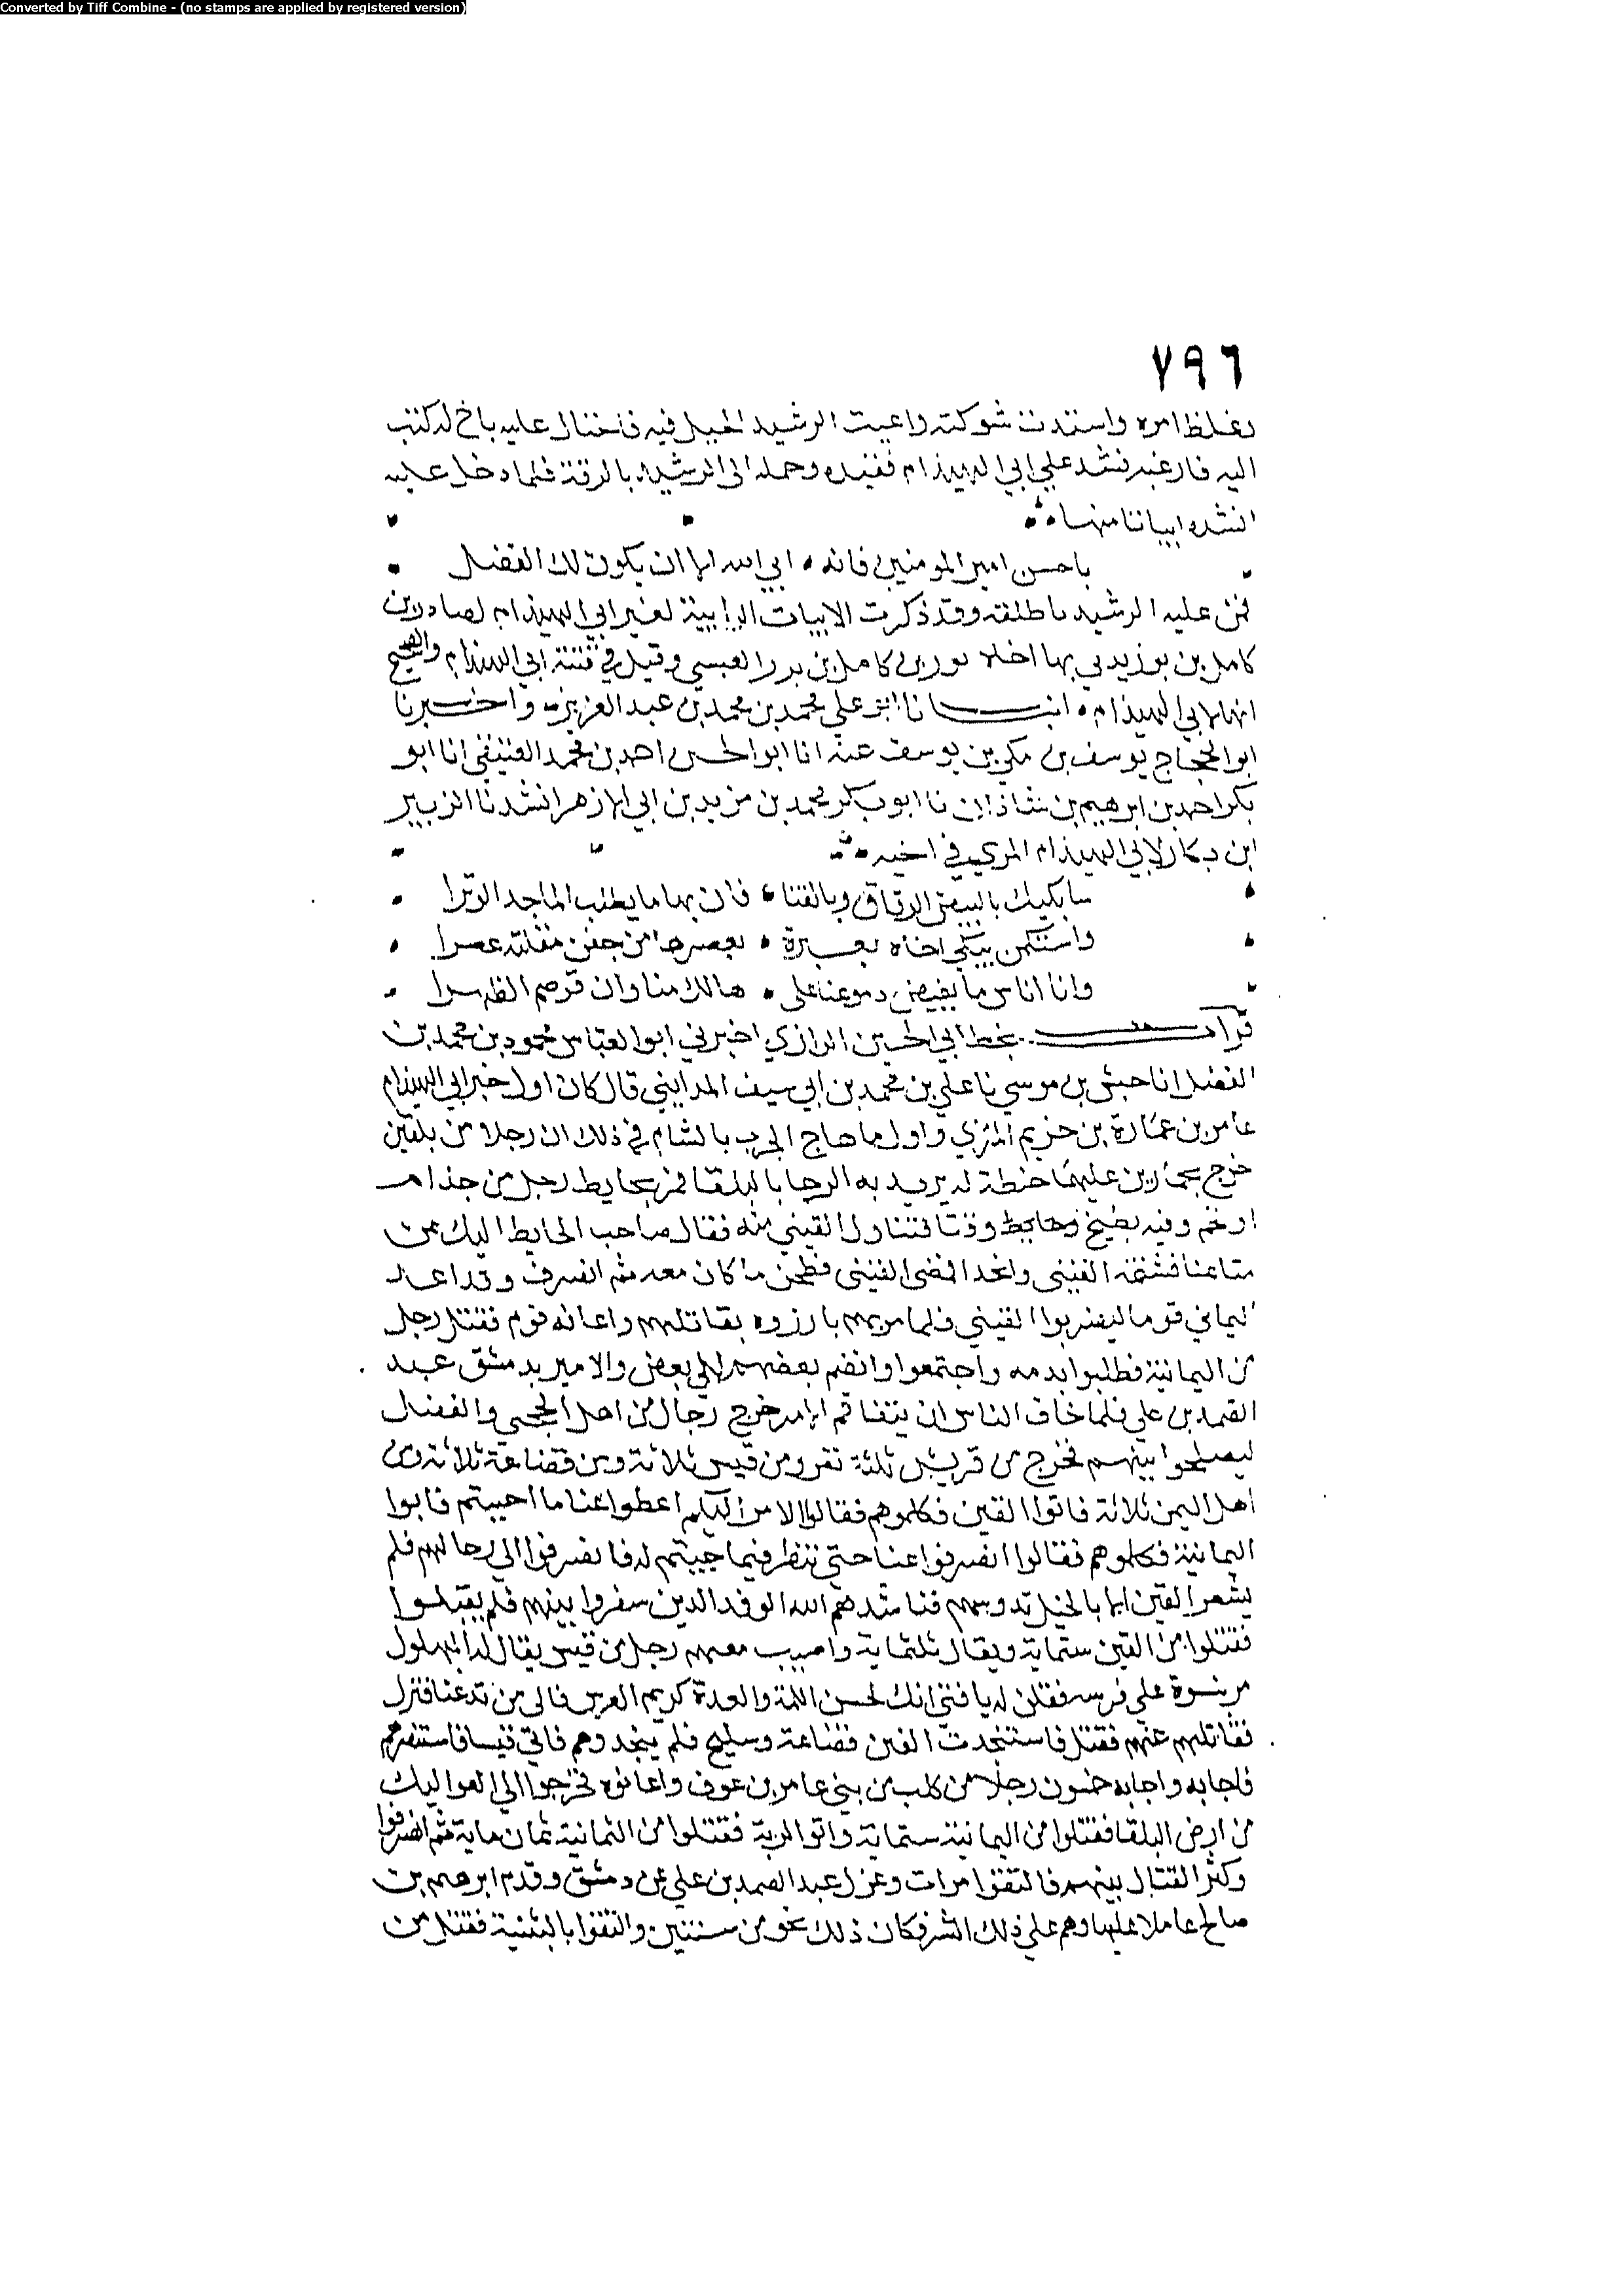 Converted by Tiff Combine - (no stamps are applied by registered version)
٧٩٦
فغلظ امره واشتدت شوكته واعيت الرشيد الحيل فيه فاحتال عليه باخ له كتب
اليه فارغبه فشد علي ابي الهيذام فقيده وحمله الى الرشيد بالرقة فلما دخل عليه
انشده ابياتا منها
باحسن امير المومنين فانه ، ابي الله الا ان يكون لك الفضل
فمن عليه الرشيد واطلقه وقد ذكرت الابيات الرايية لغير ابي الهيذام لصادر بن
كامل بن بدر العبسي وقيل في فتنة ابي الهيذام والصحيح
انها لابي الهيذام ، انبانا ابو علي محمد بن محمد بن عبد العزيز واخبرنا
ابو الحجاج يوسف بن مكي بن يوسف عنه انا ابو الحسن احمد بن محمد العتيقي انا ابو
بكر احمد بن ابرهيم بن شاذان نا ابو بكر محمد بن مزيد بن ابي الازهر انشدنا الزبير
ابن بكار لابي الهيذام المري في اخيه
سابكيك بالبيض الرقاق وبالقنا ، فان بها ما يطلب الماجد الوترا
ولست كمن يبكي اخاه بعبرة ، يعصرها من جفن مقلته عصرا
وانا اناس ما يفيض دموعنا علي ، هالك منا وان قوصم الظهرا
قرات بخط ابي الحسين الرازي اخبرني ابو العباس محمود بن محمد بن
الفضل انا حبش بن موسي نا علي بن محمد بن ابي سيف المدايني قال كان اول خبر ابي الهيذام
عامر بن عمارة بن خزيم المري واول ما هاج الحرب بالشام في ذلك ان رجلا من بلقين
خرج بحمارين عليهما حنطة له يريد به الرحا بالبلقا فمر بحايط رجل من جذام
او لخم وفيه بطيخ وقثا فتناول القيني منه فقال صاحب الحايط اليك عن
متاعنا فشتمه القيني واتخدا فمضى القيني فطحن ما كان معه ثم انصرف وقد اعد
اليماني قوما ليضربوا القيني فلما مر بهم بارزوه بقاتلهم واعانه قوم فقتل رجل
من اليمانية فطلبوا بدمه واجتمعوا وانضم بعضهم الي بعض والامير بدمشق عبد
الصمد بن علي فلما خاف الناس ان يتفاقم الامر خرج رجال من اهل الحجى والفضل
ليصلحوا بينهم فخرج من قريش ثلثة نفر ومن قيس ثلاثة ومن قضاعة ثلاثة ومن
اهل اليمن ثلاثة فاتوا القين فكلموهم فقالوا الامر اليكم اعطوا عنا ما احببتم فاتوا
اليمانية فكلموهم فقالوا انصرفوا عنا حتي ننظر فيما جيتم له فانصرفوا الي رحالهم فلم
يشعر القين الا بالخيل تدوسهم فناشدهم الله الوفد الذين سفروا بينهم فلم يقبلوا
فقتلوا من القين ستماية ويقال ثلثماية واصيب معهم رجل من قيس يقال له البهلول
مر بنسوة علي فرسه فقلن له يا فتى انك لحسن اللمة والعدة كريم الفرس فالى من تدعنا فنزل
فقاتلهم عنهم فقتل فاستنجدت القين قضاعة وسليح فلم ينجدوهم فاتي قيسا فاستنصرهم
فاجابه واجابه خمسون رجلا من كلب من بني عامر بن عوف واعانوه فخرجوا الي العواليك
من ارض البلقا فقتلوا من اليمانية ستماية واتوا الربة فقتلوا من اليمانية ثمان ماية ثم انصرفوا
وكثر القتال بينهم فالتقوا مرات وعزل عبد الصمد بن علي عن دمشق وقدم ابرهيم بن
صالح عاملا عليها وهم علي ذلك الشر فكان ذلك نحو من سنتين والتقوا بالبثنية فقتل من